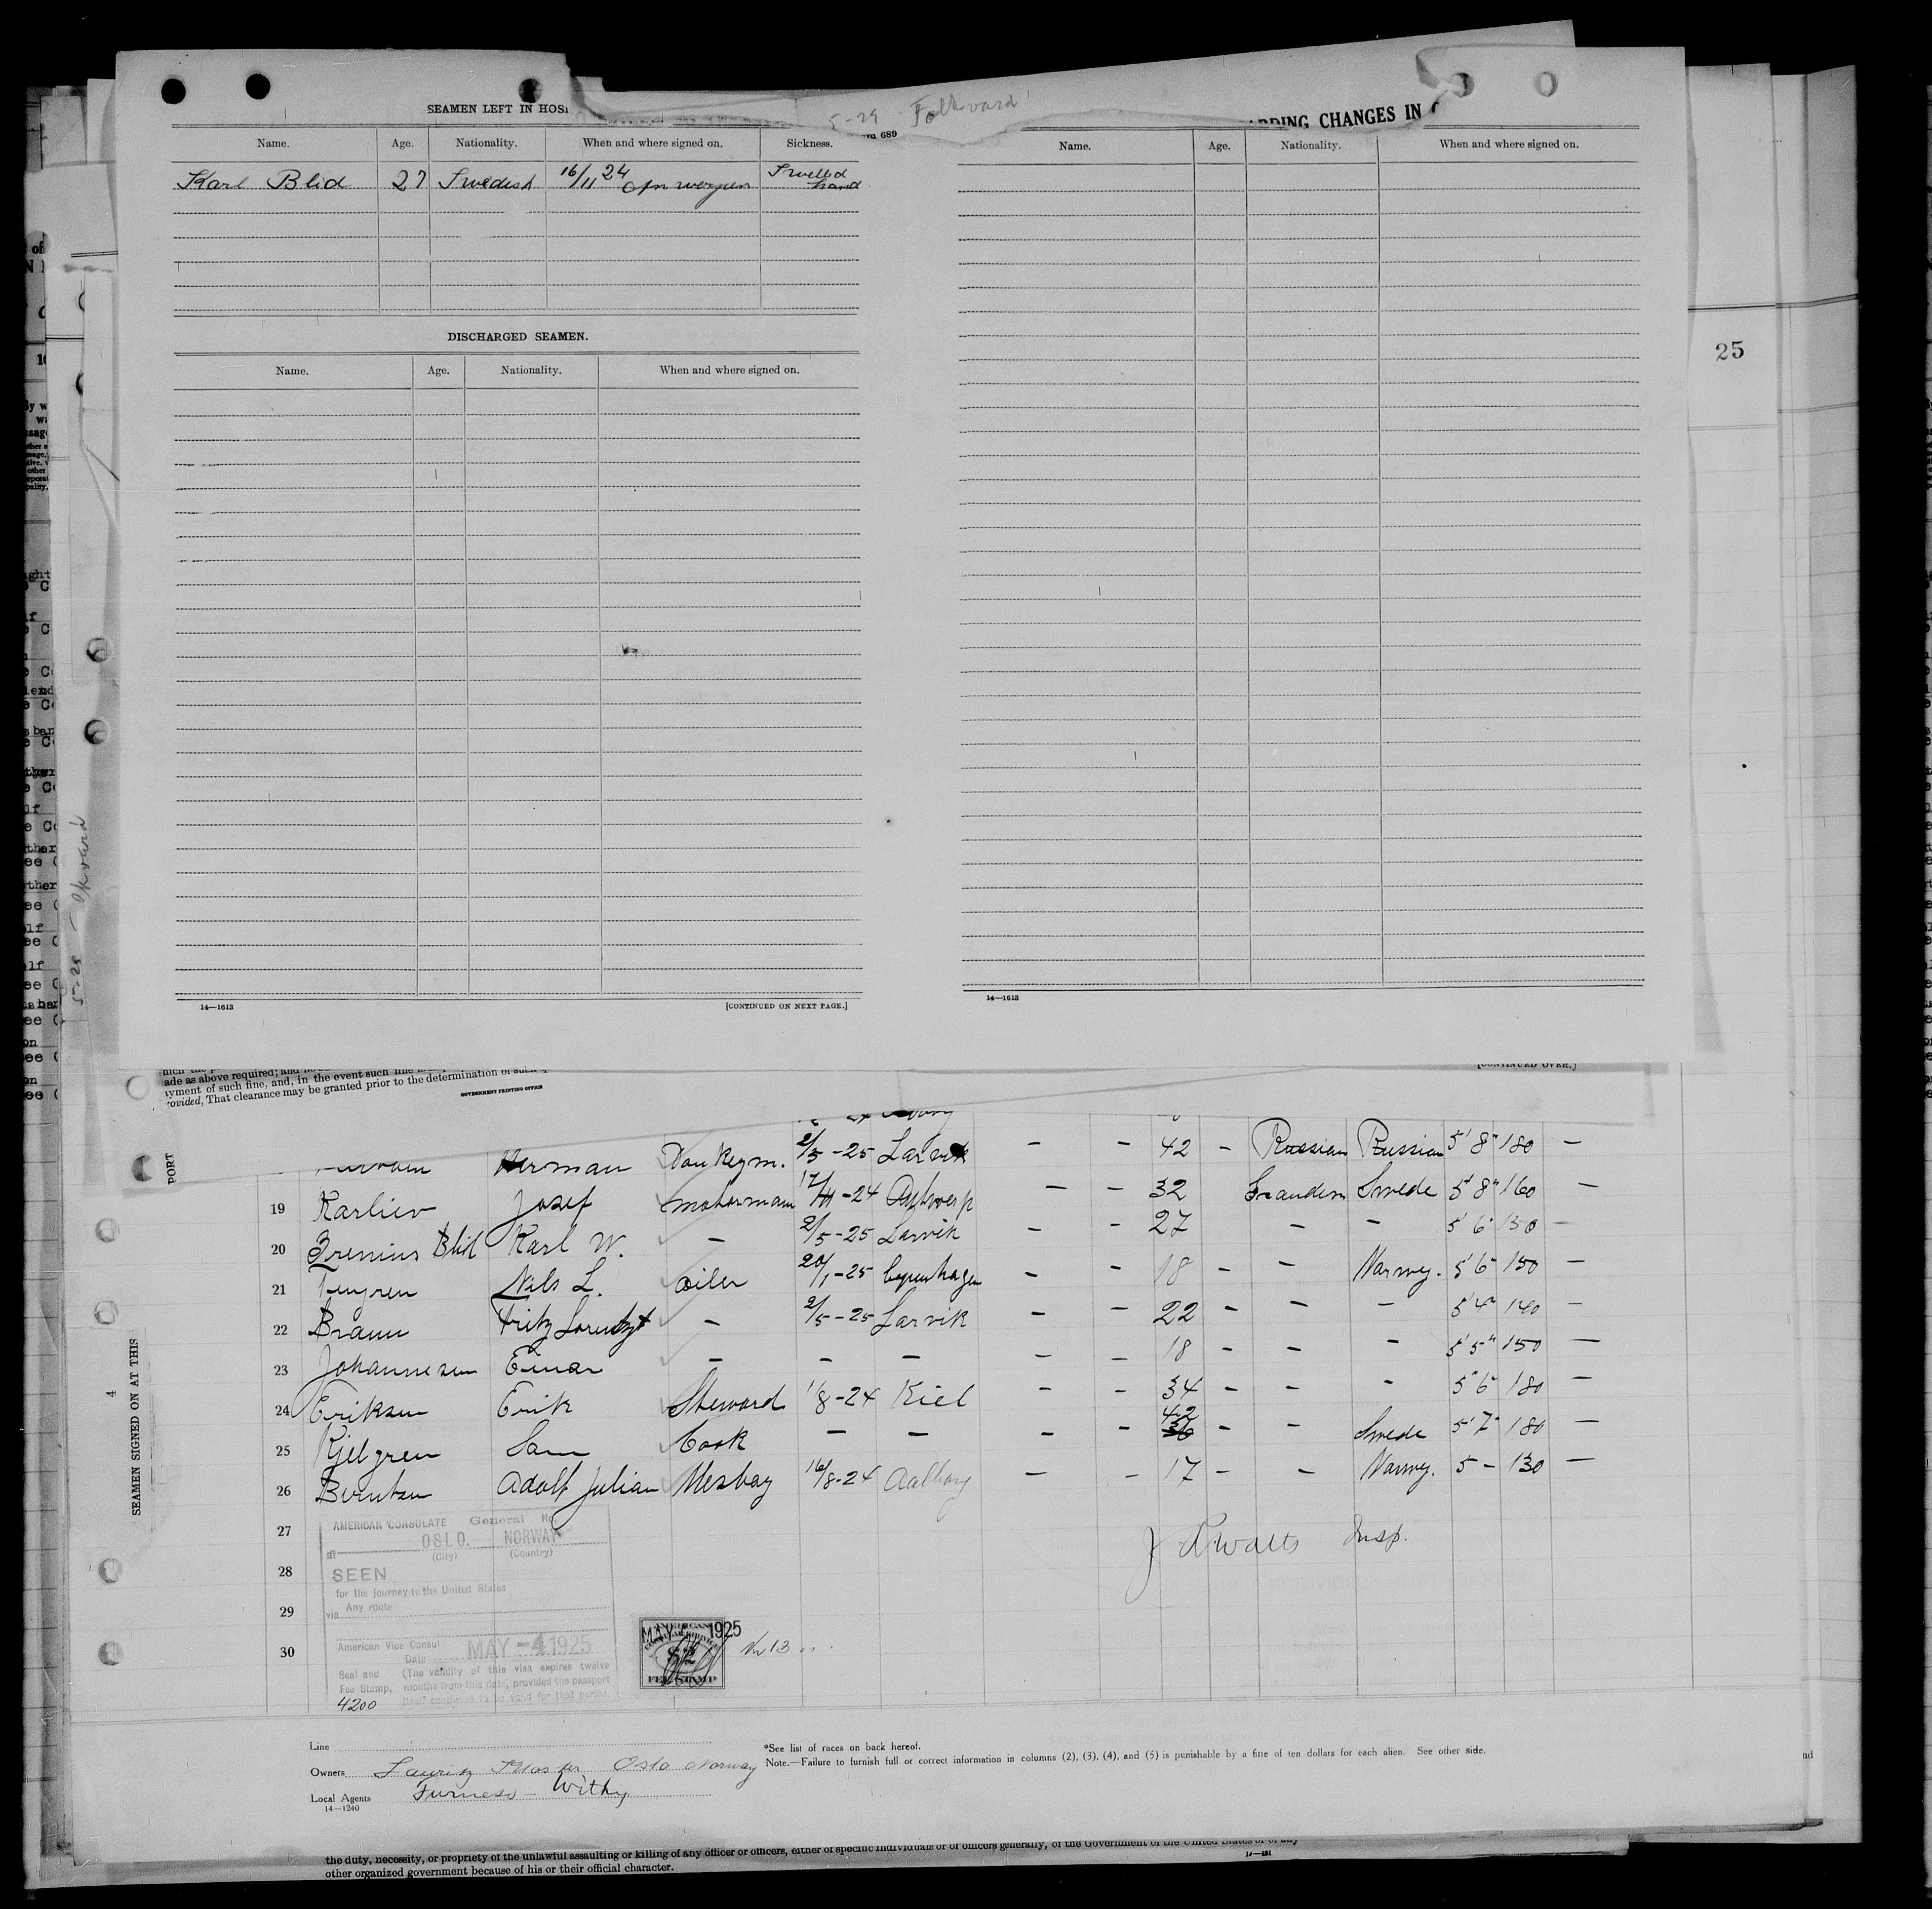 SEAMEN LEFT IN HOSP
5-29 Folkvard
689
RDING CHANGES IN
Name. Age. Nationality. When and where signed on. Sickness.
Karl Blid 27 Swedish 16/11 24 Swelled hand
DISCHARGED SEAMEN.
Name. Age. Nationality. When and where signed on.
14—1613 [CONTINUED ON NEXT PAGE.]
Name. Age. Nationality. When and where signed on.
14—1613
25
ade as above required; and
ayment of such fine, and, in the event such fine
rovided, That clearance may be granted prior to the determination of such
GOVERNMENT PRINTING OFFICE
[CONTINUED OVER.]
PORT
4
SEAMEN SIGNED ON AT THIS
Herman Donkeym. 2/5-25 Larvik — — 42 — Russian Russian 5' 8" 180 —
19 Karliev Josef motormann 17/11-24 Antwerp — — 32 Scandin Swede 5' 8" 160 —
20 Blid Karl W. — 2/5-25 Larvik — — 27 — — 5' 6" 150 —
21 Nils L. oiler 20/1-25 Copenhagen — — 18 — — Norweg. 5' 6" 150 —
22 Braun Fritz Lorentz — 2/5-25 Larvik — — 22 — — — 5' 4" 140 —
23 Johannesen Einar — — — — — 18 — — — 5' 5" 150 —
24 Eriksen Erik Steward 1/8-24 Kiel — — 34 — — — 5" 6" 180 —
25 Kjelgren Sam Cook — — — — 42 36 — — Swede 5' 7" 180 —
26 Berntsen Adolf Julian Messboy 16/8-24 Aalborg — — 17 — — Norweg. 5 — 130 —
27
28
29
30
AMERICAN CONSULATE General No.
at OSLO. NORWAY
(City) (Country)
SEEN
for the journey to the United States
via Any route
American Vice Consul
Date MAY -4 1925
Seal and Fee Stamp, (The validity of this visa expires twelve
months from this date, provided the passport
itself continues to be valid for that period.
4200
MAY 1925
AMERICAN
$2
FEE STAMP
No 13
J Watts Insp.
Line
Owners Lauritz Kloster Oslo Norway
Local Agents Furness - Withy
14—1240
*See list of races on back hereof.
Note.—Failure to furnish full or correct information in columns (2), (3), (4), and (5) is punishable by a fine of ten dollars for each alien. See other side.
the duty, necessity, or propriety of the unlawful assaulting or killing of any officer or officers, either of specific individuals or of officers generally, of the Government of the United States or of any
other organized government because of his or their official character.